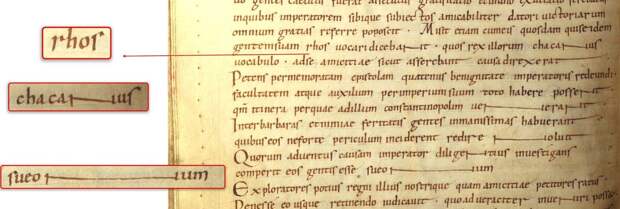 rhos
chacanus
sueonum
inquibus imperatorem sibique subiectos amicabiliter datori uictoriarum
omnium gratias referre poposcit. Misit etiam cumeis quosdam quise idem
gentemsuam rhos uocari dicebant. quos rex illorum chacanus
uocabulo. adse amicitiae sicut asserebant causa direxerat
Petens permemoratam epistolam quatenus benignitate imperatoris redeundi
facultatem atque auxilium perimperium suum toto habere possent
qm itinera perquae adillum constantinopolim uenerant
Interbarbaras etnimiae feritatis gentes inmanissimas habuerant
quibus eos neforte periculum inciderent redire noluit
Quorum aduentus causam imperator diligentius inuestigans
comperit eos gentis esse sueonum
Exploratores potius regni illius nostrique quam amicitiae petitores ratus
Penesse eousque retinendo iudicauit. quoadueraciter inueniri posset